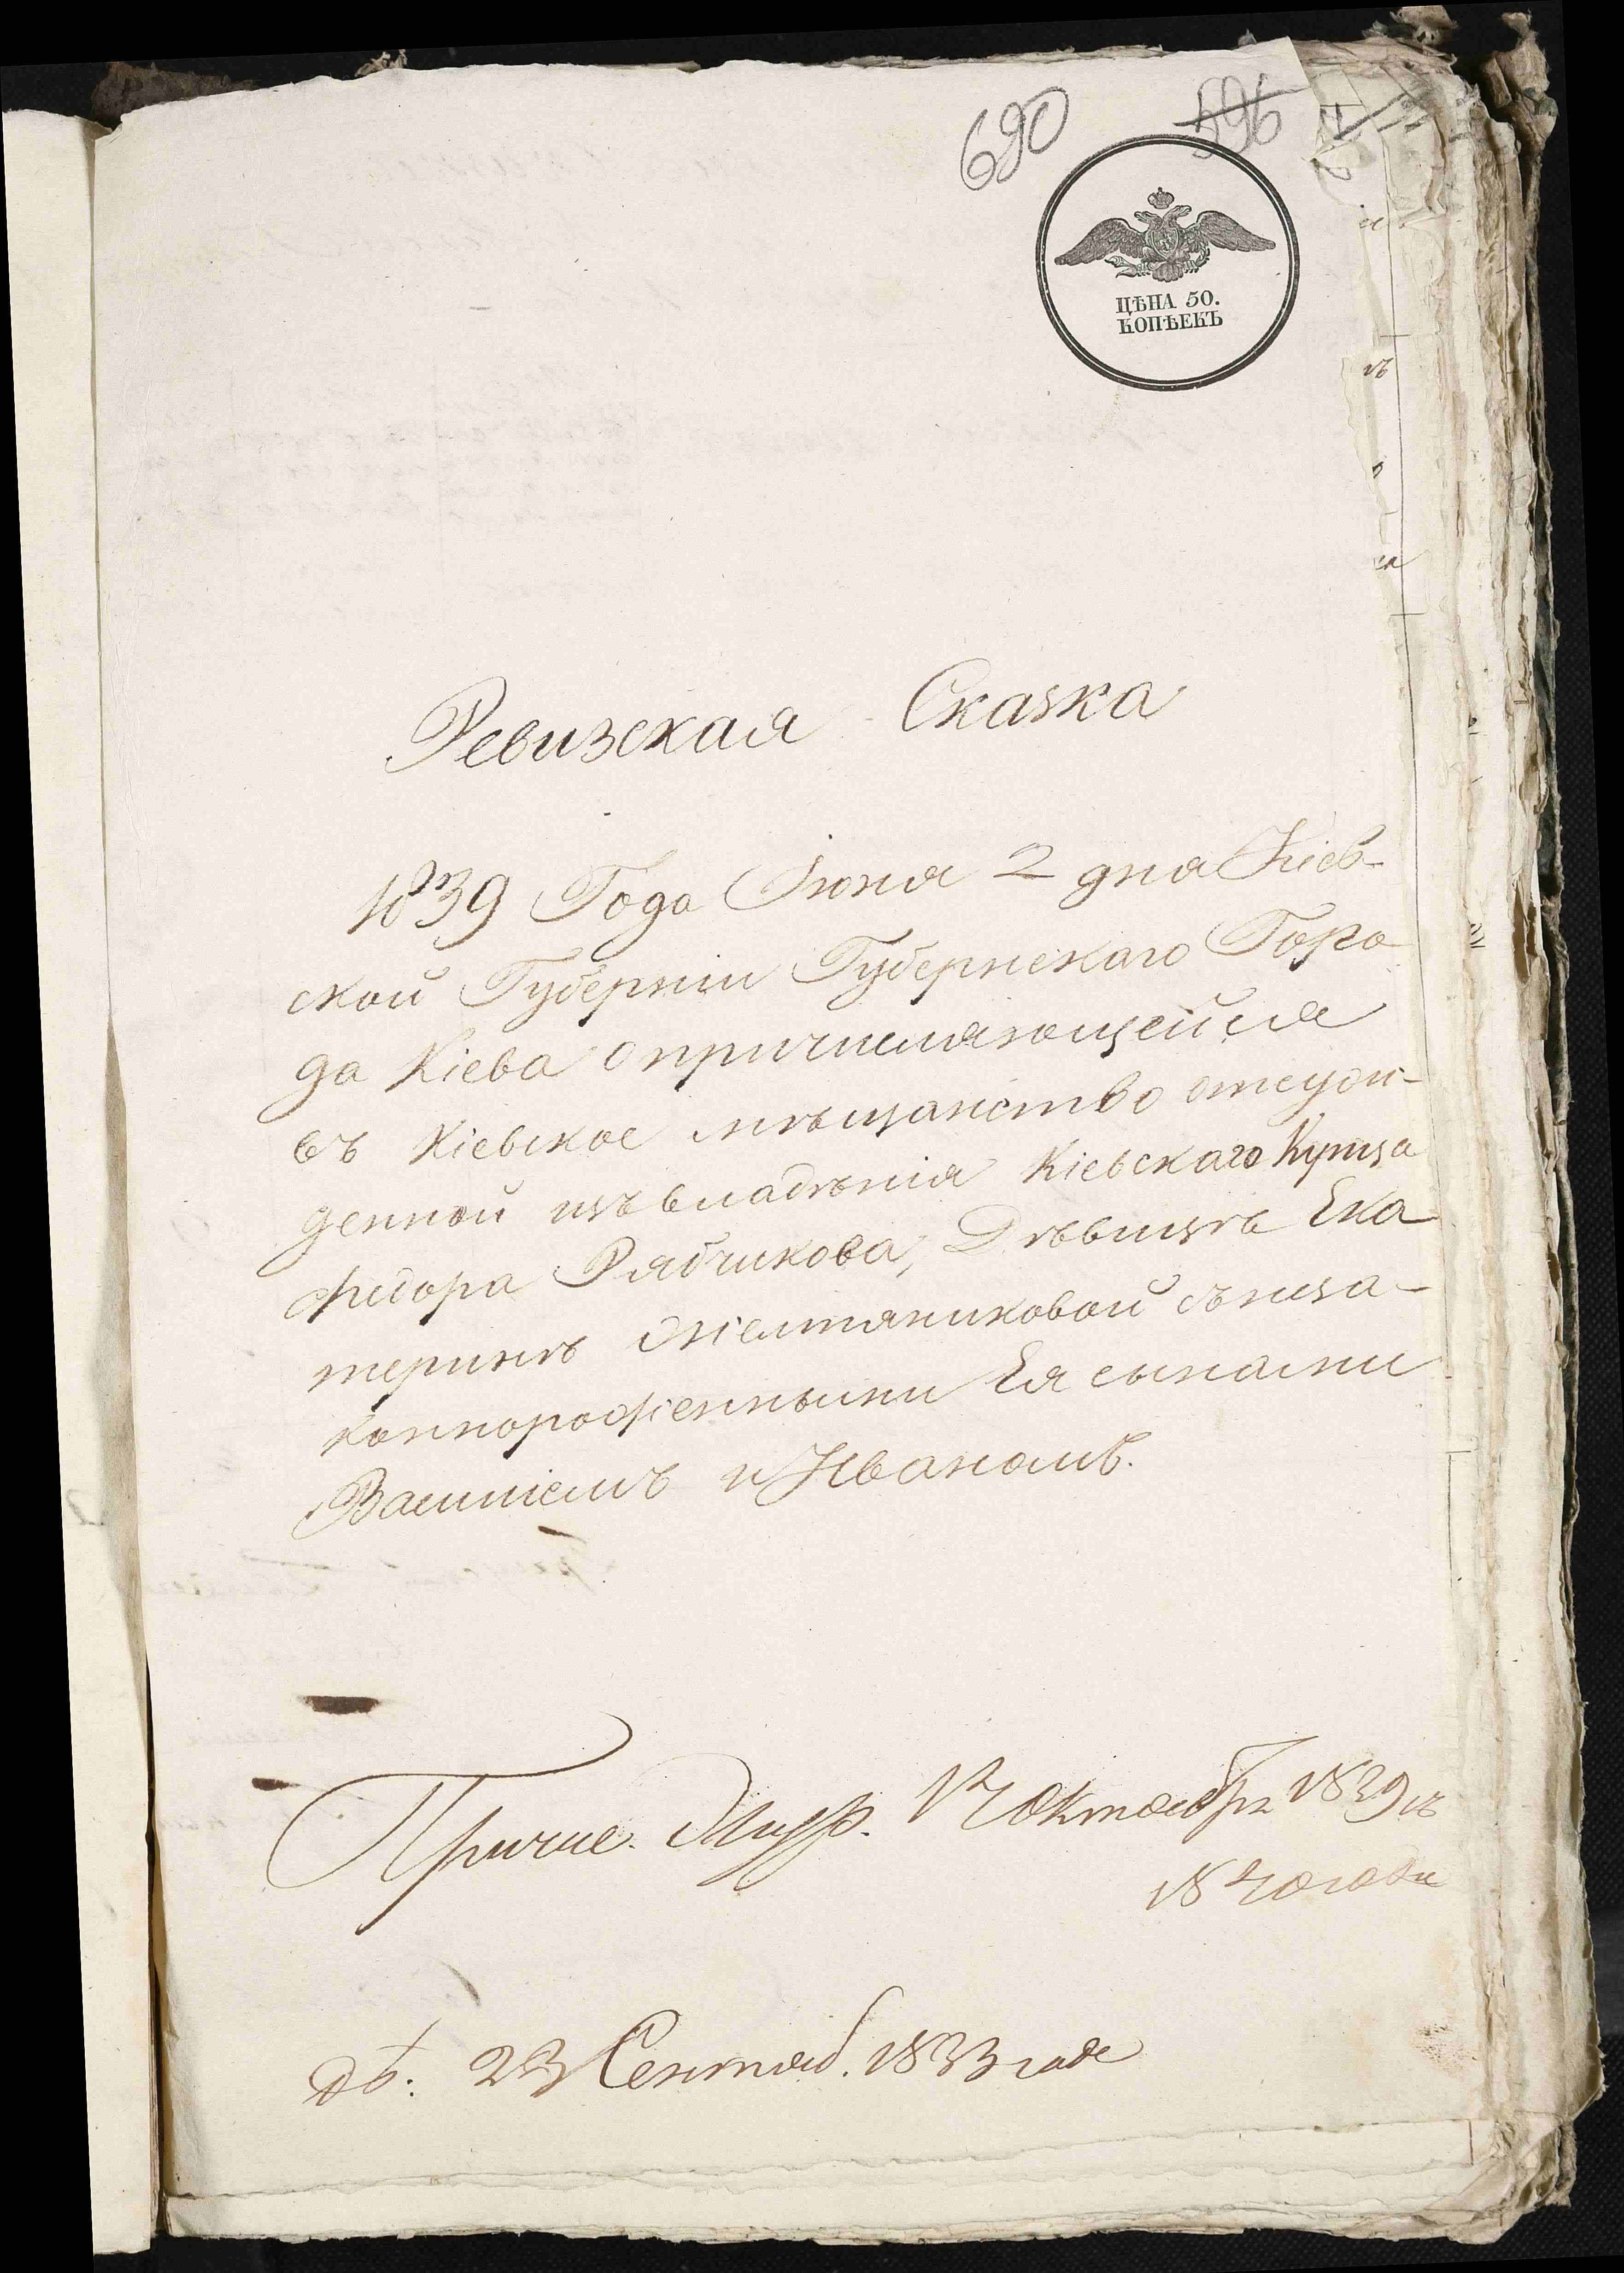 690 596
ЦѢНА 50.
КОПѢЕКЪ
Ревизская Сказка
1839 Года Іюня 2 дня Кіев-
ской Губерніи Губернскаго Горо
да Кіева опричисляющейся
въ Кіевское мѣщанство отсуж-
денной изъ владѣнія Кіевскаго Купца
Фидора Рябчикова, Дѣвицѣ Ека
теринѣ Желтяниковой съ неза-
коннорожденными Ея сынами
Василіемъ и Иваномъ.
Причис. 17 октября 1839 съ
1840 года
23 Сентяб. 1833 года